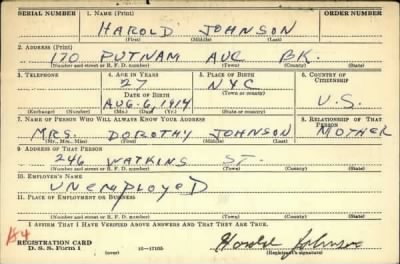 SERIAL NUMBER 1. NAME (Print) ORDER NUMBER
HAROLD JOHNSON
(First) (Middle) (Last)
2. ADDRESS (Print)
170 PUTNAM AVE BK.
(Number and street or R. F. D. number) (Town) (County) (State)
3. TELEPHONE 4. AGE IN YEARS 5. PLACE OF BIRTH 6. COUNTRY OF CITIZENSHIP
27 NYC
DATE OF BIRTH (Town or county)
AUG. 6, 1914 U.S.
(Exchange) (Number) (Mo.) (Day) (Yr.) (State or country)
7. NAME OF PERSON WHO WILL ALWAYS KNOW YOUR ADDRESS 8. RELATIONSHIP OF THAT PERSON
MRS. DOROTHY JOHNSON MOTHER
(Mr., Mrs., Miss) (First) (Middle) (Last)
9. ADDRESS OF THAT PERSON
246 WATKINS ST.
(Number and street or R. F. D. number) (Town) (County) (State)
10. EMPLOYER'S NAME
UNEMPLOYED
11. PLACE OF EMPLOYMENT OR BUSINESS
(Number and street or R. F. D. number) (Town) (County) (State)
I AFFIRM THAT I HAVE VERIFIED ABOVE ANSWERS AND THAT THEY ARE TRUE.
REGISTRATION CARD
D. S. S. Form 1 (over) Harold Johnson
(Registrant's signature)